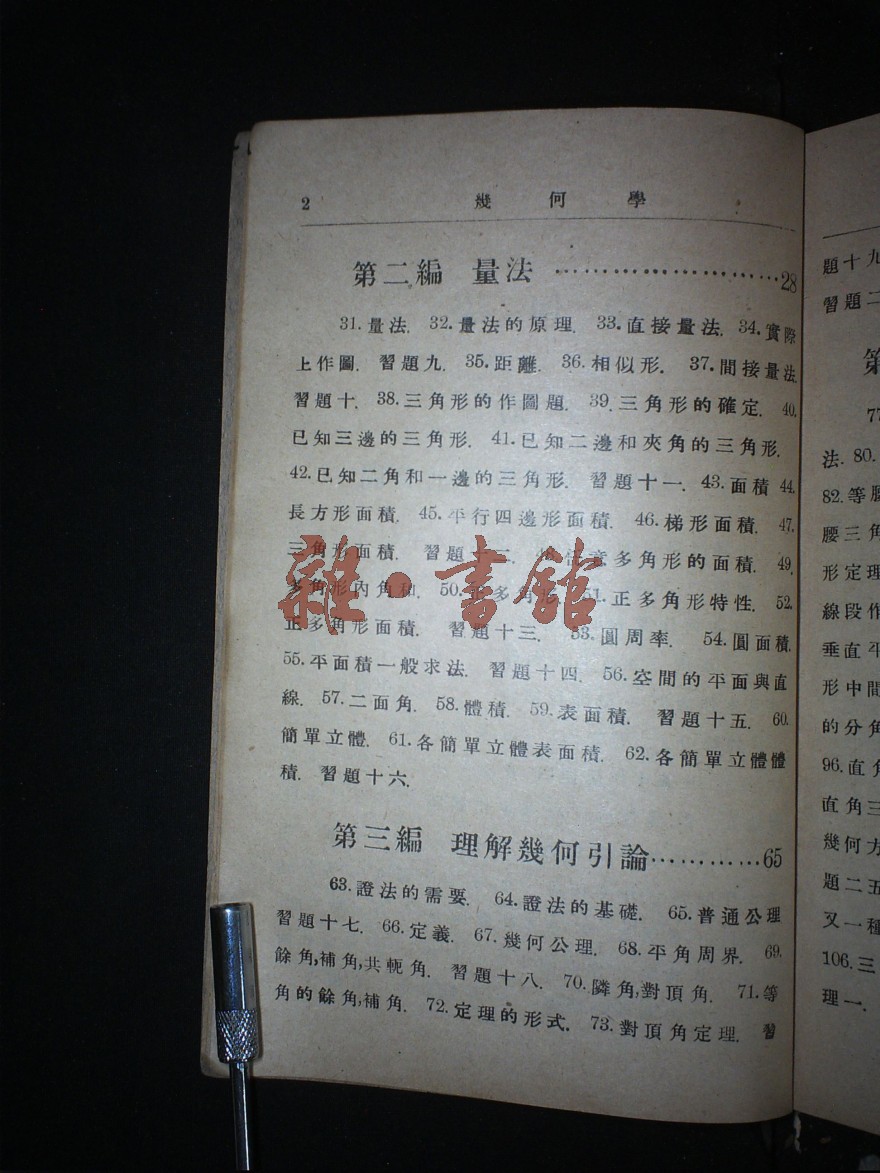 2 幾何學
第二編 量法 ························28
31.量法. 32.量法的原理. 33.直接量法. 34.實際
上作圖. 習題九. 35.距離. 36.相似形. 37.間接量法.
習題十. 38.三角形的作圖題. 39.三角形的確定. 40.
已知三邊的三角形. 41.已知二邊和夾角的三角形.
42.已知二角和一邊的三角形. 習題十一. 43.面積 44.
長方形面積. 45.平行四邊形面積. 46.梯形面積. 47.
三角形面積. 習題十二. 48.任意多角形的面積. 49.
多角形內角和. 50.正多角形. 51.正多角形特性. 52.
正多角形面積. 習題十三. 53.圓周率. 54.圓面積.
55.平面積一般求法. 習題十四. 56.空間的平面與直
線. 57.二面角. 58.體積. 59.表面積. 習題十五. 60.
簡單立體. 61.各簡單立體表面積. 62.各簡單立體體
積. 習題十六.
雜·書館
第三編 理解幾何引論············65
63.證法的需要. 64.證法的基礎. 65.普通公理
習題十七. 66.定義. 67.幾何公理. 68.平角周界. 69.
餘角,補角,共軛角. 習題十八. 70.隣角,對頂角. 71.等
角的餘角,補角. 72.定理的形式. 73.對頂角定理. 習
題十九
習題二
第
77
法. 80.
82.等腰
腰三角
形定理
線段作
垂直平
形中間
的分角
96.直角
直角三
幾何方
題二五
又一種
106.三
理一.